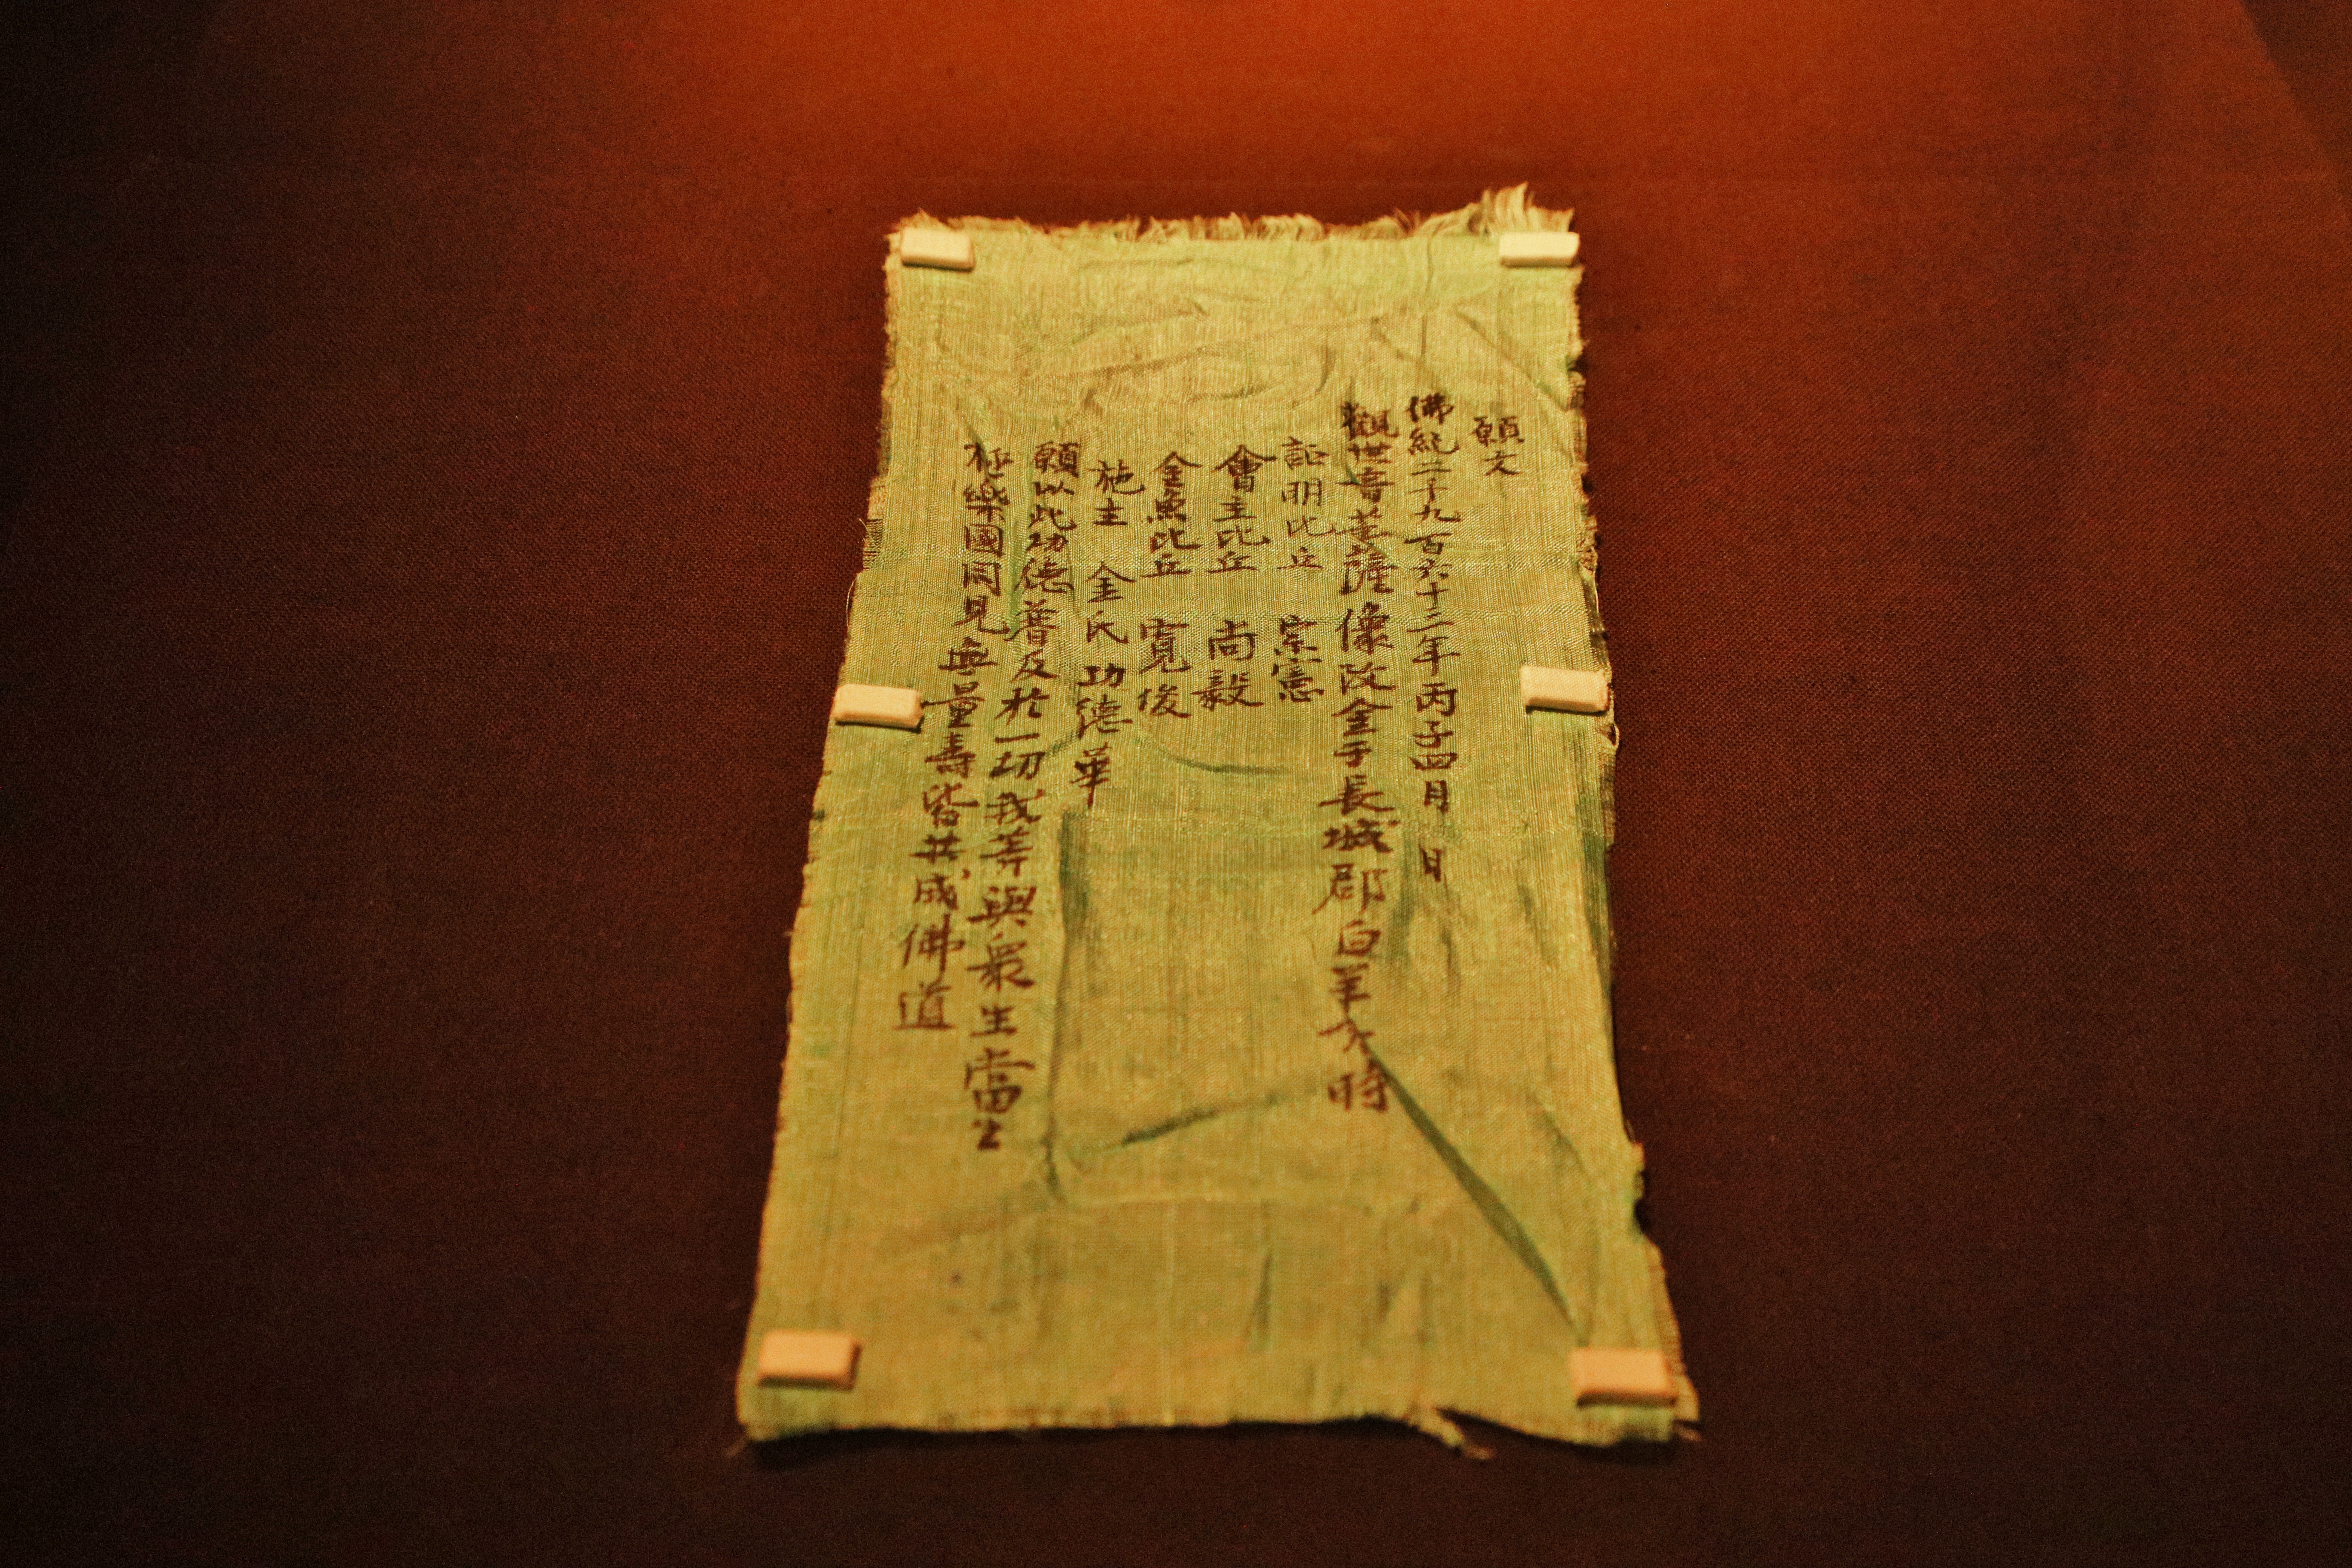 願文
佛紀二千九百六十三年丙子四月 日
觀世音菩薩像改金于長城郡白羊 時
証明比丘 宗憲
會主比丘 尚毅
金魚比丘 寬俊
施主 金氏 功德華
願以此功德普及於一切我等與衆生當生
極樂國同見無量壽皆共成佛道